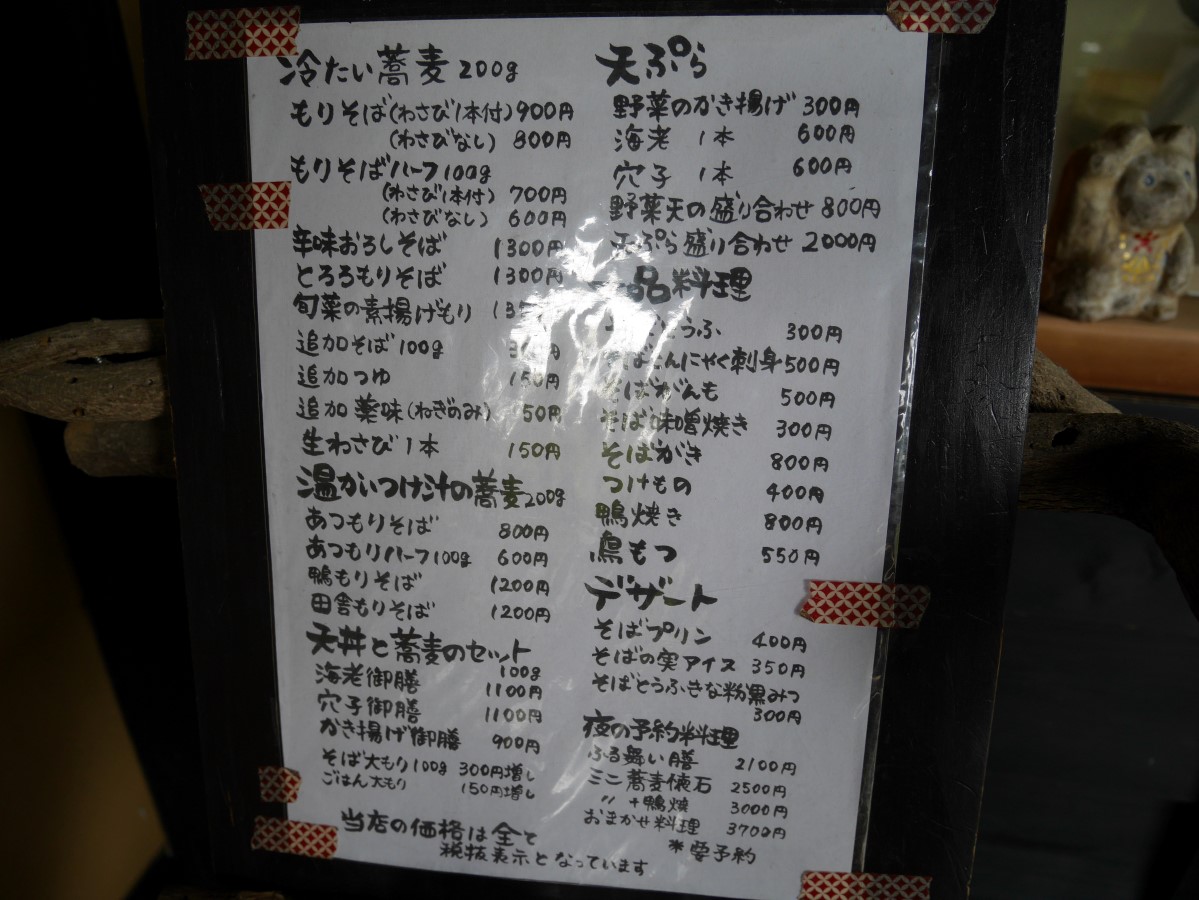 冷たい蕎麦 200g
もりそば(わさび1本付) 900円
(わさびなし) 800円
もりそばハーフ100g
(わさび1本付) 700円
(わさびなし) 600円
辛味おろしそば 1300円
とろろもりそば 1300円
旬菜の素揚げもり
追加そば100g
追加つゆ 150円
追加薬味(ねぎのみ) 50円
生わさび1本 150円
温かいつけ汁の蕎麦200g
あつもりそば 800円
あつもりハーフ100g 600円
鴨もりそば 1200円
田舎もりそば 1200円
天丼と蕎麦のセット
100g
海老御膳 1100円
穴子御膳 1100円
かき揚げ御膳 900円
そば大もり100g 300円増し
ごはん大もり 150円増し
当店の価格は全て
税抜表示となっています
天ぷら
野菜のかき揚げ 300円
海老 1本 600円
穴子 1本 600円
野菜天の盛り合わせ 800円
天ぷら盛り合わせ 2000円
品料理
うふ 300円
そばこんにゃく刺身 500円
そばがんも 500円
そば味噌焼き 300円
そばがき 800円
つけもの 400円
鴨焼き 800円
鳥もつ 550円
デザート
そばプリン 400円
そばの実アイス 350円
そばとうふきな粉黒みつ
300円
夜の予約料理
ふる舞い膳 2100円
ミニ蕎麦懐石 2500円
〃 +鴨焼 3000円
おまかせ料理 3700円
*要予約